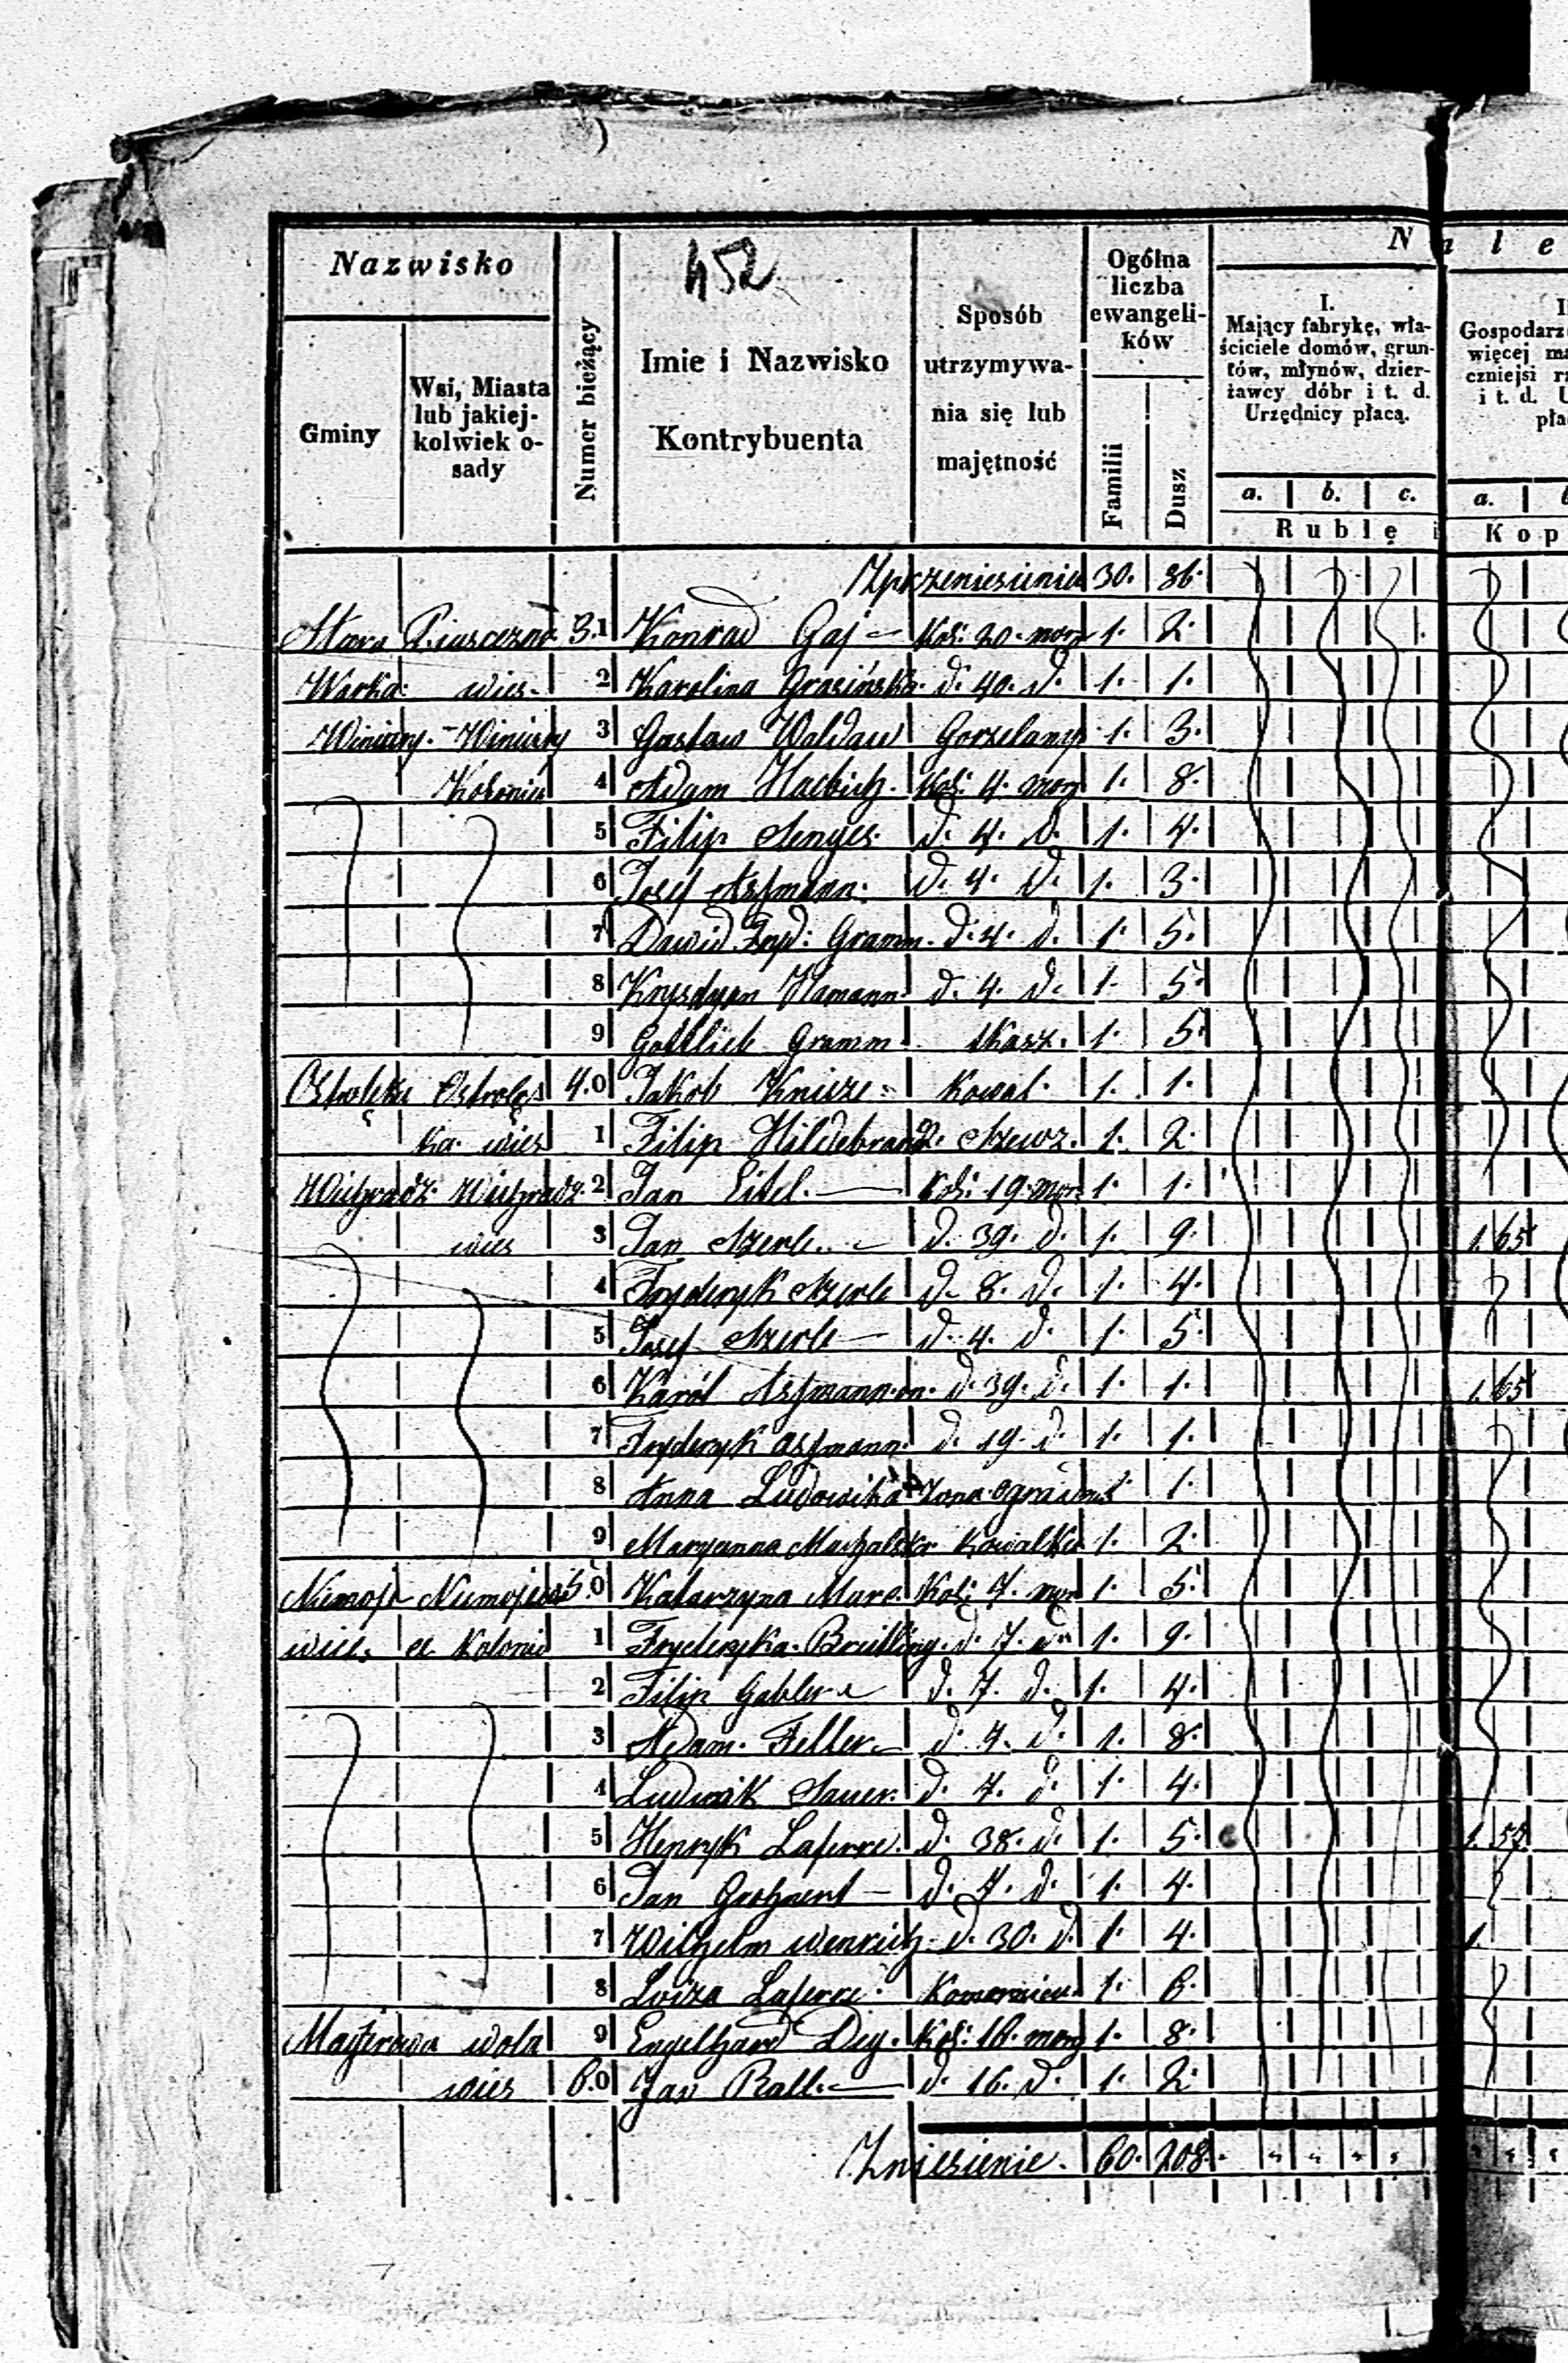 452
Nazwisko
Gminy
Wsi, Miasta lub jakiej-kolwiek o-sady
Numer bieżący
Imie i Nazwisko Kontrybuenta
Sposób utrzymywa-nia się lub majętność
Ogólna liczba ewangeli-ków
Familii
Dusz
N a l e
I. Mający fabrykę, wła-ściciele domów, grun-tów, młynów, dzier-żawcy dóbr i t. d. Urzędnicy płacą.
Gospodarz więcej czniejsi i t. d.
a. b. c. a.
Rublę i Kop
Z przeniesienia 30. 86.
Stara Piaseczno 3.1 Konrad Gaj Kol: 20 morg 1. 2.
Warka wieś 2 Karolina Grasińska d. 40. d. 1. 1.
Winiary Winiary 3 Gustaw Waldau Gorzelany 1. 3.
Kolonia 4 Adam Haebich Kol: 4. morg 1. 8.
5 Filip Senges d. 4. d. 1. 4.
6 Josef Assmann d. 4. d. 1. 3.
7 Dawid Fryd: Gramm d. 4. d. 1. 5.
8 Krystyan Hamann d. 4. d. 1. 5.
9 Gottlieb Gramm tkacz. 1. 5.
Ostrołęka Ostrołę 4.0 Jakob Knisze Kowal 1. 1.
ka wieś 1 Filip Hildebrandt Szewc. 1. 2.
Wichradz Wichradz 2 Jan Eitel Kol: 19 mor 1. 1.
wieś 3 Jan Szerle d. 39. d. 1. 9. 1. 65
4 Fryderyk Szerle d. 8. d. 1. 4.
5 Josef Szerle d. 4. d. 1. 5.
6 Karól Assmann d. 39. d. 1. 1. 1. 65
7 Fryderyk Assmann d. 19. d. 1. 1.
8 Anna Ludowika Żona 1.
9 Maryanna Machalska Kowalka 1. 2.
Niemoje Niemojewi 5.0 Katarzyna Marc Kol: 7. mor 1. 5.
wice ce Kolonia 1 Fryderyka Breitling d. 7. d. 1. 9.
2 Filip Gabler d. 7. d. 1. 4.
3 Adam Feller d. 4. d. 1. 8.
4 Ludwik Sauer d. 7. d. 1. 4.
5 Henryk Laferre d. 38. d. 1. 5. 1. 57
6 Jan d. 7. d. 1. 4.
7 Wilhelm Wenrich d. 30. d. 1. 4. 1.
8 Loiza Laferre 1. 6.
Majerowa wola 9 Engelhard Dey Kol: 16. morg 1. 8.
wieś 6.0 Jan Rall d. 16. d. 1. 2.
Zniesienie 60. 208.